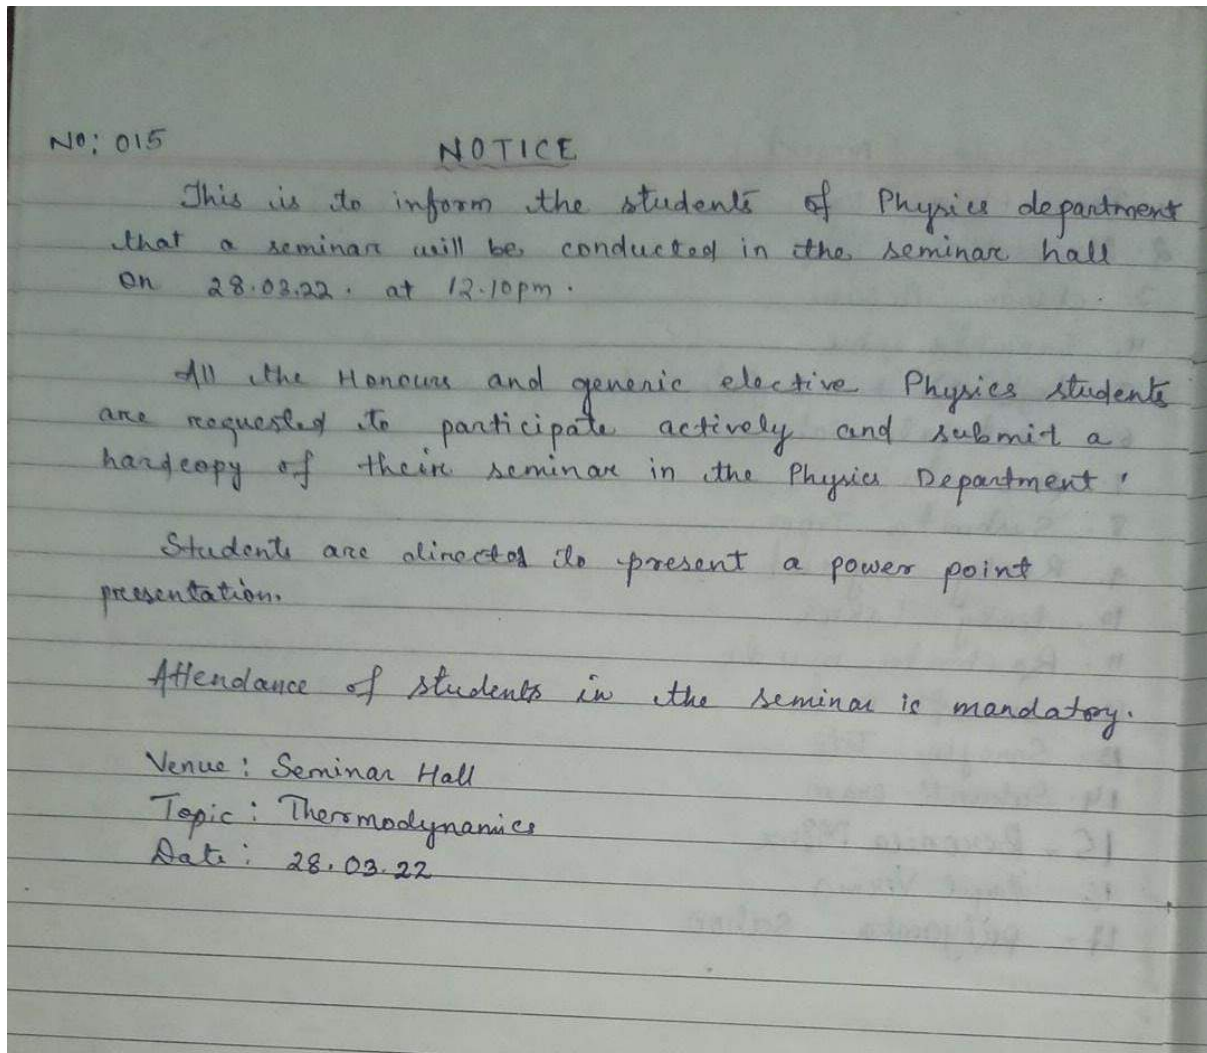 No: 015
NOTICE
This is to inform the students of Physics department
that a seminar will be conducted in the seminar hall
on 28.03.22. at 12.10pm.
All the Honours and generic elective Physics students
are requested to participate actively and submit a
hardcopy of their seminar in the Physics Department.
Students are directed to present a power point
presentation.
Attendance of students in the seminar is mandatory.
Venue: Seminar Hall
Topic: Thermodynamics
Date: 28.03.22